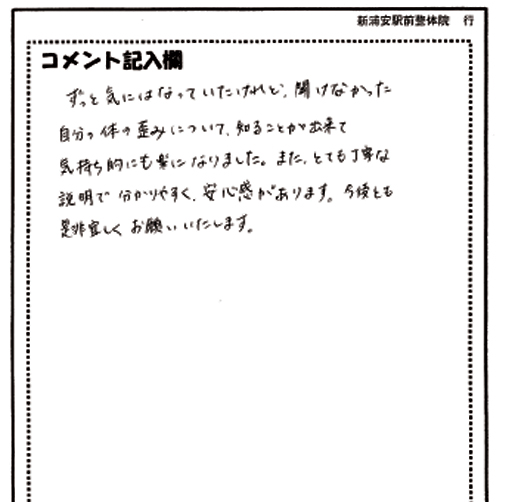 新浦安駅前整体院 行
コメント記入欄
ずっと気にはなっていたけれど、聞けなかった
自分の体の歪みについて、知ることが出来て
気持ち的にも楽になりました。また、とても丁寧な
説明で分かりやすく、安心感があります。今後とも
是非宜しくお願いいたします。